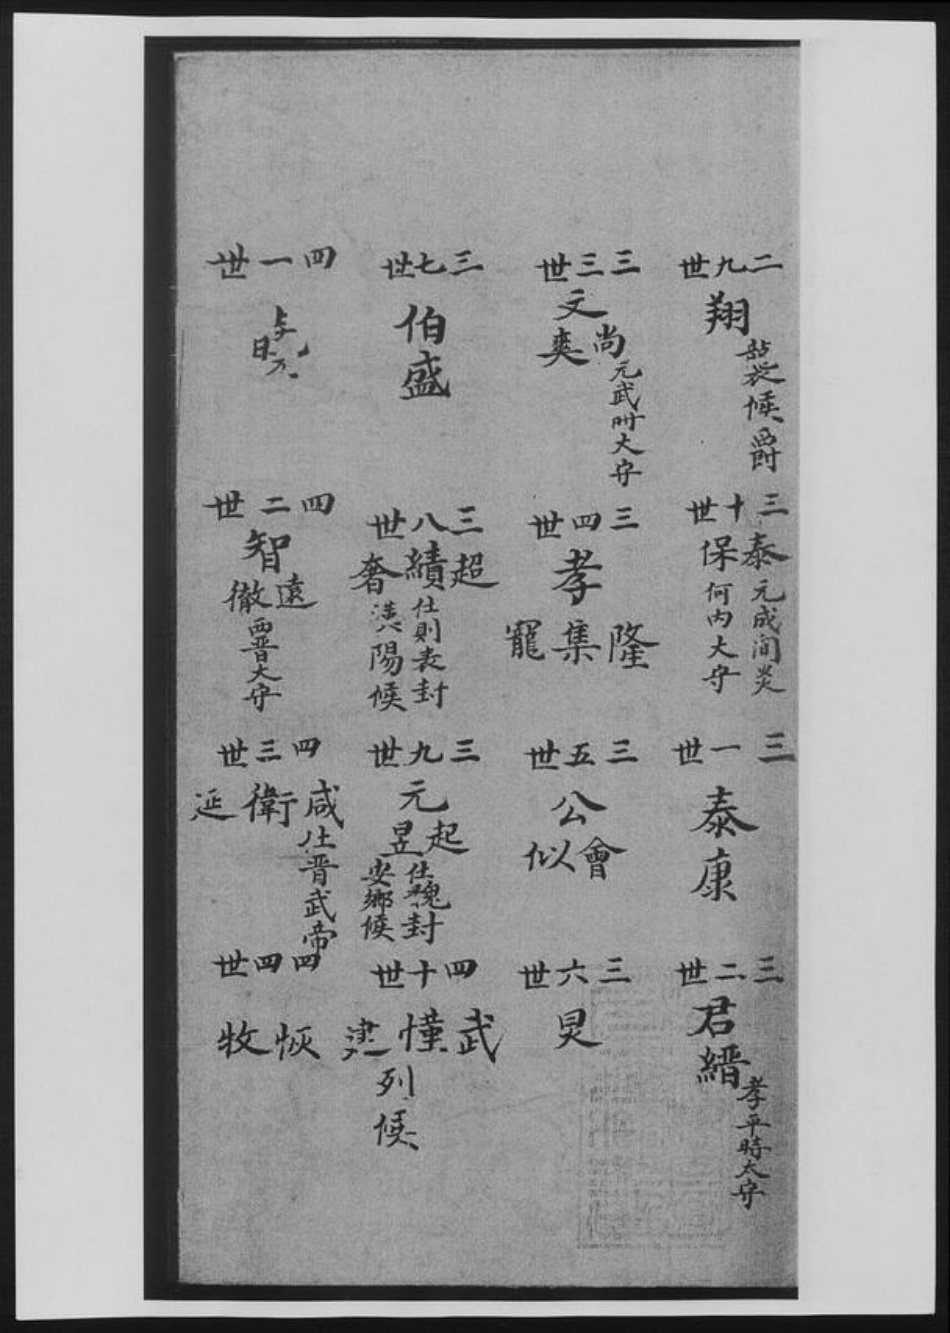 二九世
翔
襲候爵
三十世
泰
保
元成間炎
何内大守
三一世
泰康
三二世
君縉
孝平時太守
三三世
文
尚
爽
元武時大守
三四世
孝
隆
集
寵
三五世
公
會
似
三六世
炅
三七世
伯盛
三八世
超
績
奢
仕則表封
漢陽候
三九世
元
起
昱
仕魏封
安鄉候
四十世
武
慬
建
列候
四一世
四二世
智
遠
徹
晋大守
四三世
咸
衛
延
仕晋武帝
四四世
恢
牧